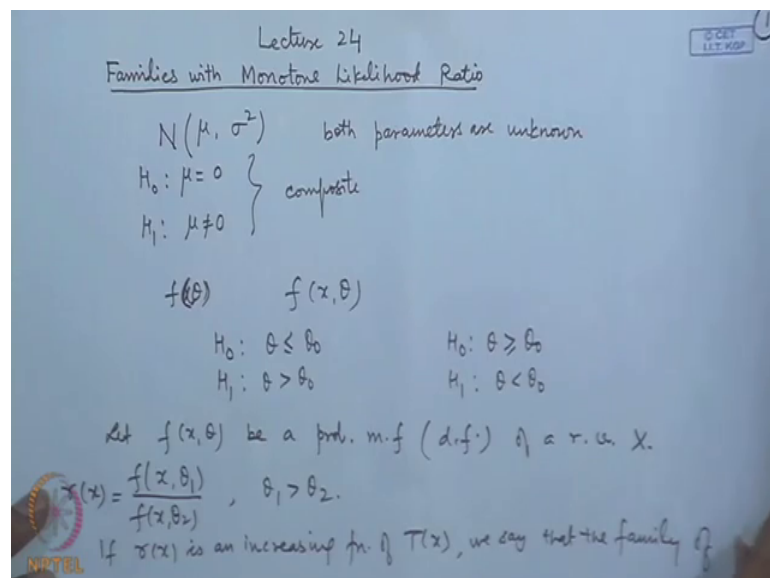 Lecture 24
© CET
I.I.T. KGP
1
Families with Monotone Likelihood Ratio
N(μ, σ²) both parameters are unknown
H₀: μ = 0
} composite
H₁: μ ≠ 0
f(x,θ)
H₀: θ ≤ θ₀ H₀: θ ≥ θ₀
H₁: θ > θ₀ H₁: θ < θ₀
Let f(x,θ) be a prob. m.f (d.f.) of a r.v. X.
r(x) = f(x,θ₁)/f(x,θ₂), θ₁ > θ₂.
If r(x) is an increasing fn. of T(x), we say that the family of
NPTEL